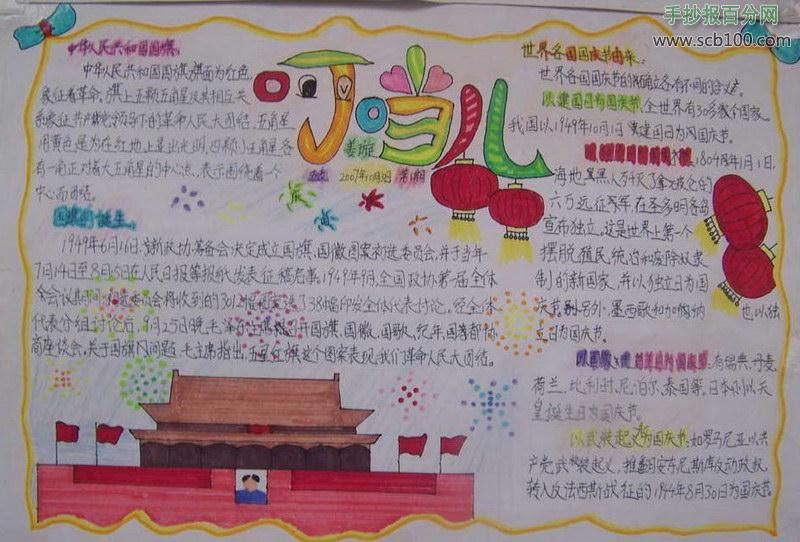 手抄报百分网
www.scb100.com
中华人民共和国国旗:
中华人民共和国国旗旗面为红色,
象征着革命。旗上五颗五角星及其相互关
系象征共产党领导下的革命人民大团结。五角星
用黄色是为在红地上显出光明,四颗小五角星各
有一角正对着大五角星的中心点,表示围绕着一个
中心而团结。
叮当儿
姜璇
2007年10月
国旗的诞生。
1949年6月16日,新政协筹备会决定成立国旗、国徽图案初选委员会,并于当年
7月14日至8月15日在人民日报等报纸发表征稿启事。1949年9月,全国政协第一届全体
会议期间,初选委员会将收到的3012幅图案选了38幅印发全体代表讨论。经全体
代表分组讨论后,9月25日晚,毛泽东主席召开国旗、国徽、国歌、纪年、国都协
商座谈会,关于国旗问题,毛主席指出,五星红旗这个图案表现我们革命人民大团结。
世界各国国庆节由来:
世界各国国庆节的确立各有不同的含义。
以建国日为国庆节,全世界有30多个国家。
我国以1949年10月1日建国日为国庆节。
1804年1月1日,
海地黑人歼灭了拿破仑的
六万远征军,在圣多明各岛
宣布独立,这是世界上第一个
摆脱殖民统治和废除奴隶
制的新国家,并以独立日为国
庆节。另外,墨西哥和加纳
也以独
立日为国庆节。
有瑞典、丹麦、
荷兰、比利时、尼泊尔、泰国等,日本则以天
皇诞生日为国庆节。
以武装起义为国庆节:如罗马尼亚以共
产党武装起义,推翻安东尼斯库反动政权,
转入反法西斯战征的1944年8月30日为国庆节。